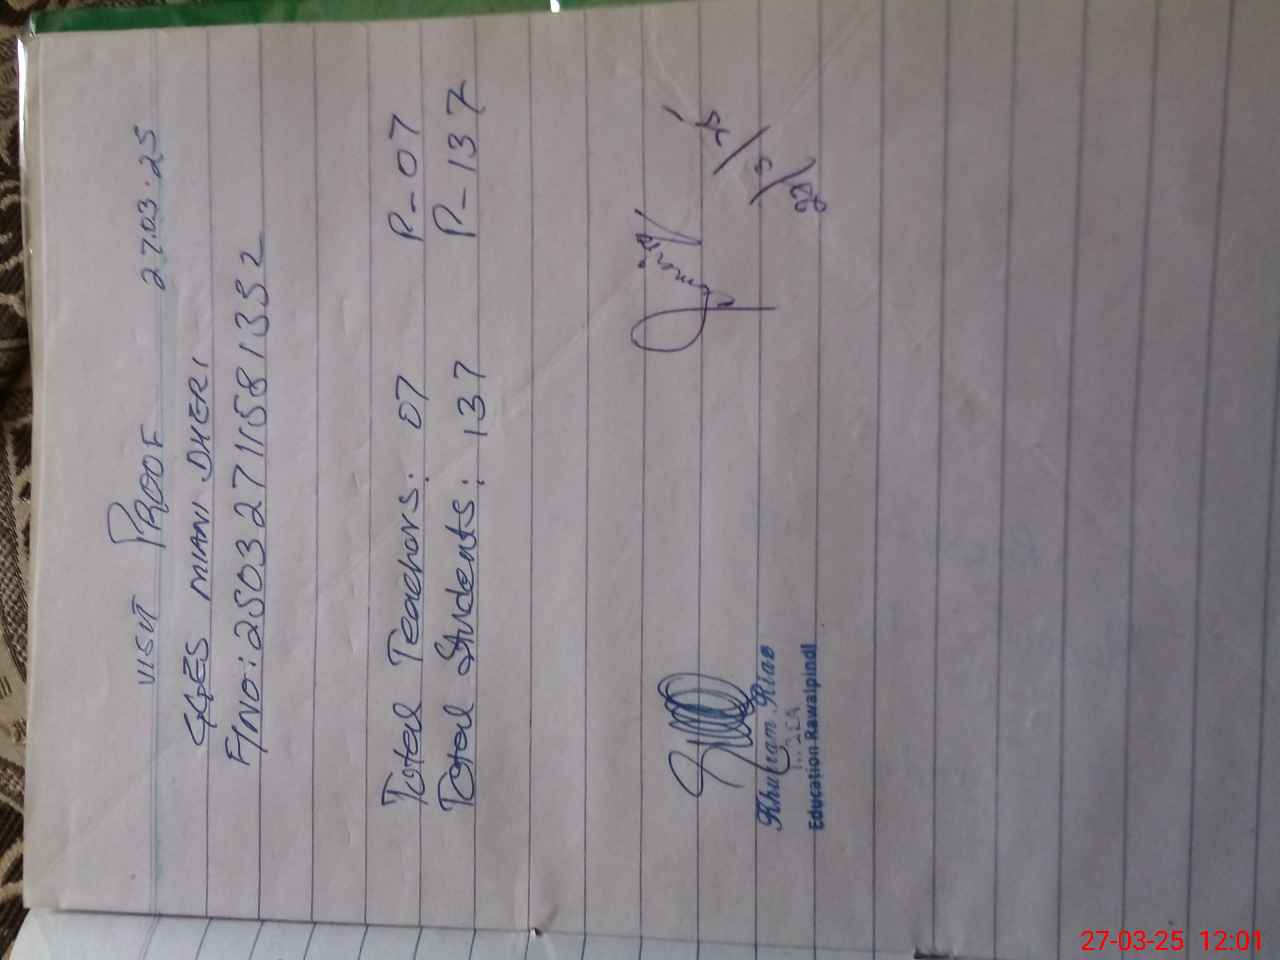 VISIT PROOF 27.03.25
GGES MIANI DHERI
F/NO: 25032711581332
Total Teachers: 07 P-07
Total Students: 137 P-137
27/3/25
Khurram Riaz
Education Rawalpindi
27-03-25 12:01